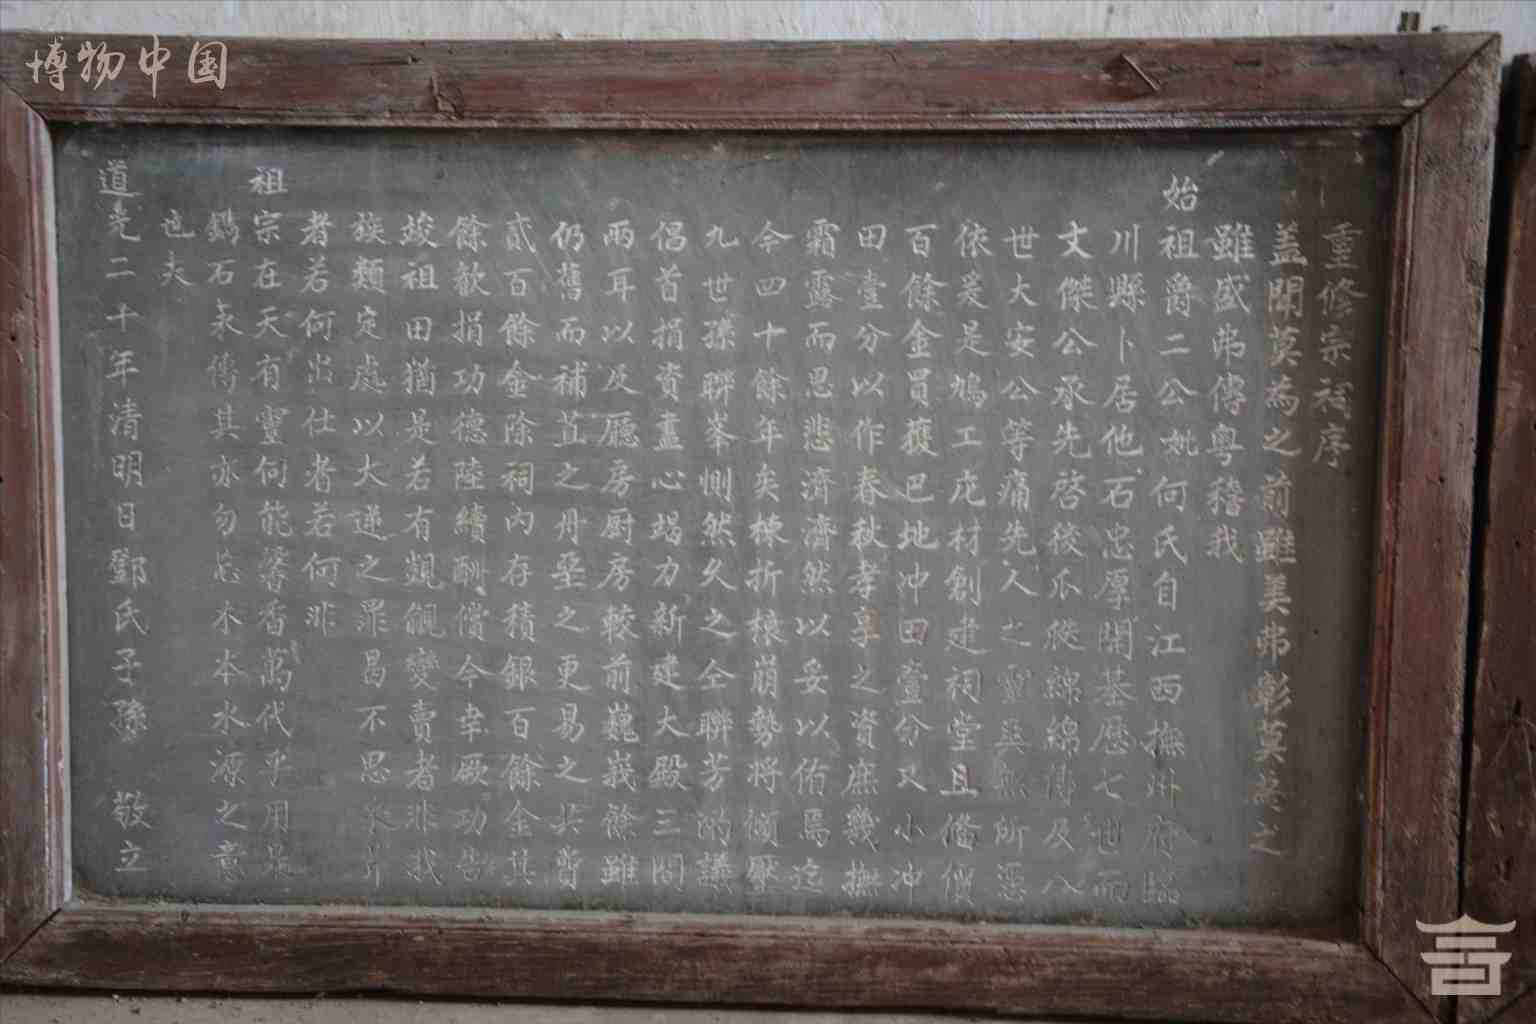 博物中国
重修宗祠序
盖聞莫為之前雖美弗彰莫為之
雖盛弗傳粤稽我
始祖爵二公妣何氏自江西撫州府臨
川縣卜居他石忠厚開基歷七世而
丈傑公承先啓後瓜瓞綿綿傳及八
世大安公等痛先人之靈無所憑
依爰是鳩工庀材創建祠堂且僃價
百餘金員蒦巴地冲田壹分又小冲
田壹分以作春秋孝享之資庶幾撫
霜露而思悲濟濟然以妥以侑焉迄
今四十餘年矣棟折榱崩勢將傾壓
九世孫聯峯惻然久之仝聯芳酌議
倡首捐資盡心竭力新建大殿三間
兩耳以及廳房厨房較前巍峩餘雖
仍舊而補苴之丹堊之更易之共費
貳百餘金除祠內存積銀百餘金其
餘歛捐功德陸續酬償今幸厥功告
竣祖田猶是若有覬覦變賣者非我
族類定處以大逆之罪曷不思
者若何出仕者若何非
祖宗在天有靈何能馨香萬代乎用是
鐫石永傳其亦勿忘木本水源之意
也夫
道光二十年清明日鄧氏子孫 敬立